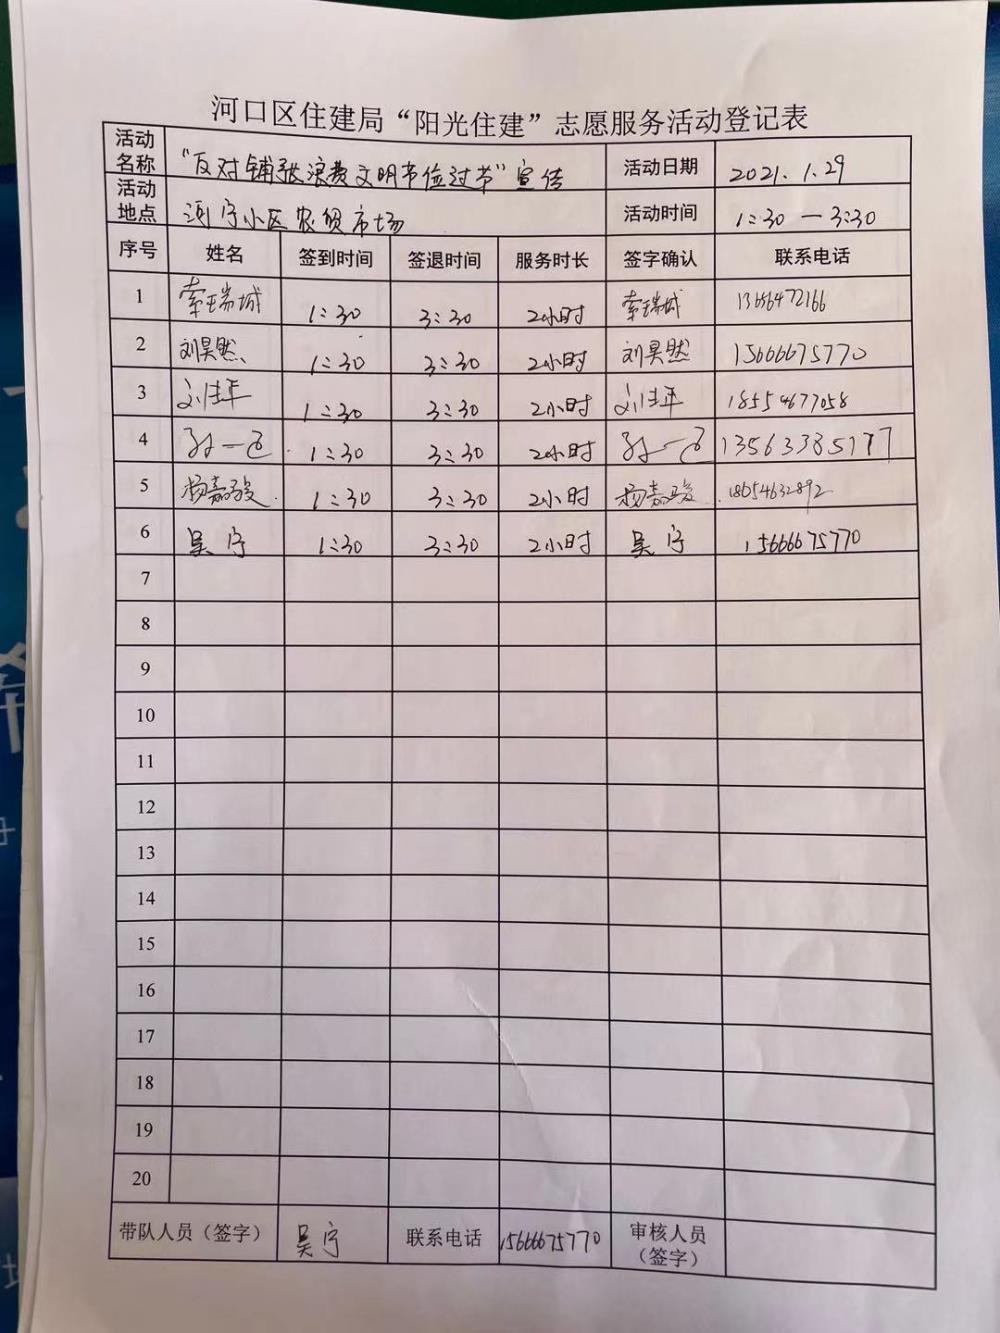 河口区住建局“阳光住建”志愿服务活动登记表
活动名称 “反对铺张浪费文明节俭过节”宣传 活动日期 2021.1.29
活动地点 河宁小区农贸市场 活动时间 1:30 — 3:30
序号 姓名 签到时间 签退时间 服务时长 签字确认 联系电话
1 索瑞城 1:30 3:30 2小时 索瑞城 13656472166
2 刘昊然 1:30 3:30 2小时 刘昊然 15666675770
3 刘佳年 1:30 3:30 2小时 刘佳年 18554677058
4 1:30 3:30 2小时 13563385177
5 杨嘉骏 1:30 3:30 2小时 杨嘉骏 18654632892
6 吴宁 1:30 3:30 2小时 吴宁 15666675770
7
8
9
10
11
12
13
14
15
16
17
18
19
20
带队人员(签字) 吴宁 联系电话 15666675770 审核人员(签字)